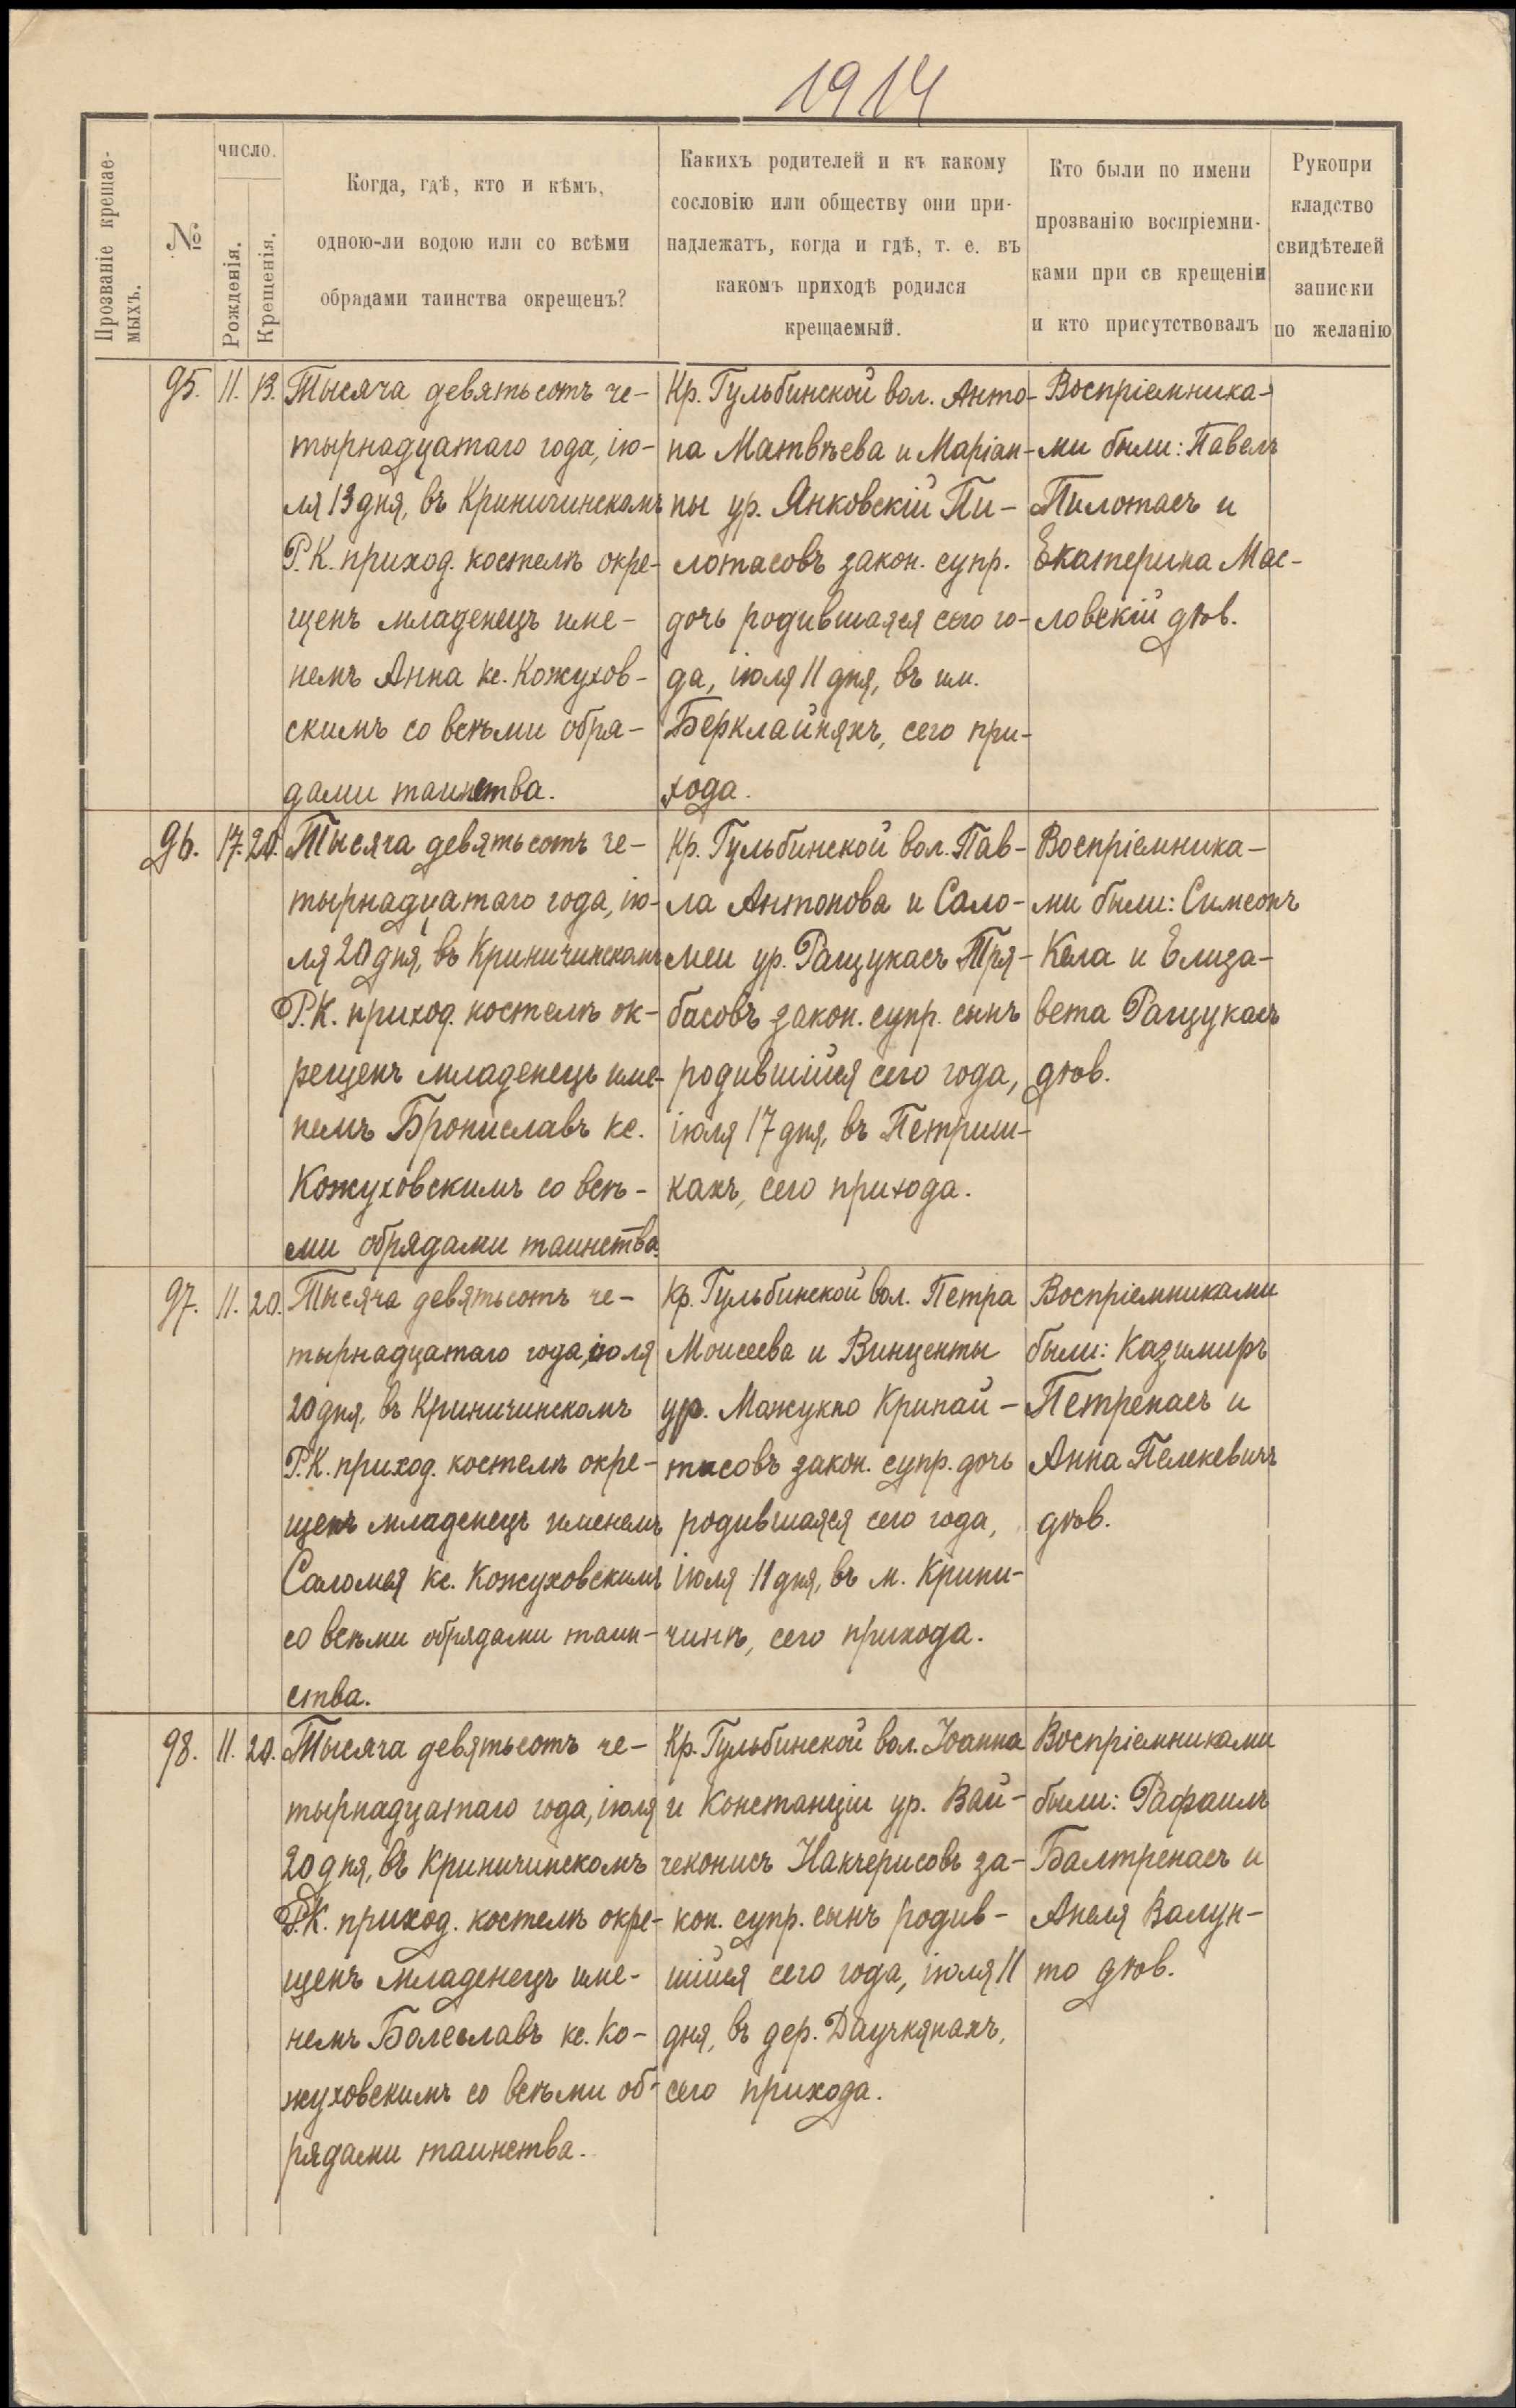 1914
Прозваніе крещае-
мыхъ.
№
число.
Рожденія.
Крещенія.
Когда, гдѣ, кто и кѣмъ,
одною-ли водою или со всѣми
обрядами таинства окрещенъ?
Какихъ родителей и къ какому
сословію или обществу они при-
надлежатъ, когда и гдѣ, т. е. въ
какомъ приходѣ родился
крещаемый.
Кто были по имени
прозванію воспріемни-
ками при св крещеніи
и кто присутствовалъ
Рукопри
кладство
свидѣтелей
записки
по желанію
95. 11. 13.
Тысяча девятьсотъ че-
тырнадцатаго года, ію-
ля 13 дня, въ Криничинскомъ
Р.К. приход. костелѣ окре-
щенъ младенецъ име-
немъ Анна кс. Кожухов-
скимъ со всѣми обря-
дами таинства.
Кр. Гульбинской вол. Анто-
на Матвѣева и Маріан-
ны ур. Янковскій Пи-
лотасовъ закон. супр.
дочь родившаяся сего го-
да, іюля 11 дня, въ им.
Берклайняхъ, сего при-
хода.
Воспріемника-
ми были: Павелъ
Пилотасъ и
Екатерина Мас-
ловскій дѣв.
96. 17. 20.
Тысяча девятьсотъ че-
тырнадцатаго года, ію-
ля 20 дня, въ Криничинскомъ
Р.К. приход. костелѣ ок-
рещенъ младенецъ име-
немъ Брониславъ кс.
Кожуховскимъ со всѣ-
ми обрядами таинства.
Кр. Гульбинской вол. Пав-
ла Антонова и Сало-
меи ур. Ращукасъ Тря-
басовъ закон. супр. сынъ
родившійся сего года,
іюля 17 дня, въ Петриш-
кахъ, сего прихода.
Воспріемника-
ми были: Симеонъ
Кела и Елиза-
вета Ращукасъ
дѣв.
97. 11. 20.
Тысяча девятьсотъ че-
тырнадцатаго года, іюля
20 дня, въ Криничинскомъ
Р.К. приход. костелѣ окре-
щенъ младенецъ именемъ
Саломея кс. Кожуховскимъ
со всѣми обрядами таин-
ства.
Кр. Гульбинской вол. Петра
Моисеева и Винценты
ур. Мажукно Кринай-
тисовъ закон. супр. дочь
родившаяся сего года,
іюля 11 дня, въ м. Крини-
чинѣ, сего прихода.
Воспріемниками
были: Казимиръ
Петренасъ и
Анна Пелекевичъ
дѣв.
98. 11. 20.
Тысяча девятьсотъ че-
тырнадцатаго года, іюля
20 дня, въ Криничинскомъ
Р.К. приход. костелѣ окре-
щенъ младенецъ име-
немъ Болеславъ кс. Ко-
жуховскимъ со всѣми об-
рядами таинства.
Кр. Гульбинской вол. Іоанна
и Констанціи ур. Вай-
чеконисъ Накчерисовъ за-
кон. супр. сынъ родив-
шійся сего года, іюля 11
дня, въ дер. Даучкянахъ,
сего прихода.
Воспріемниками
были: Рафаилъ
Балтренасъ и
Анеля Валун-
то дѣв.